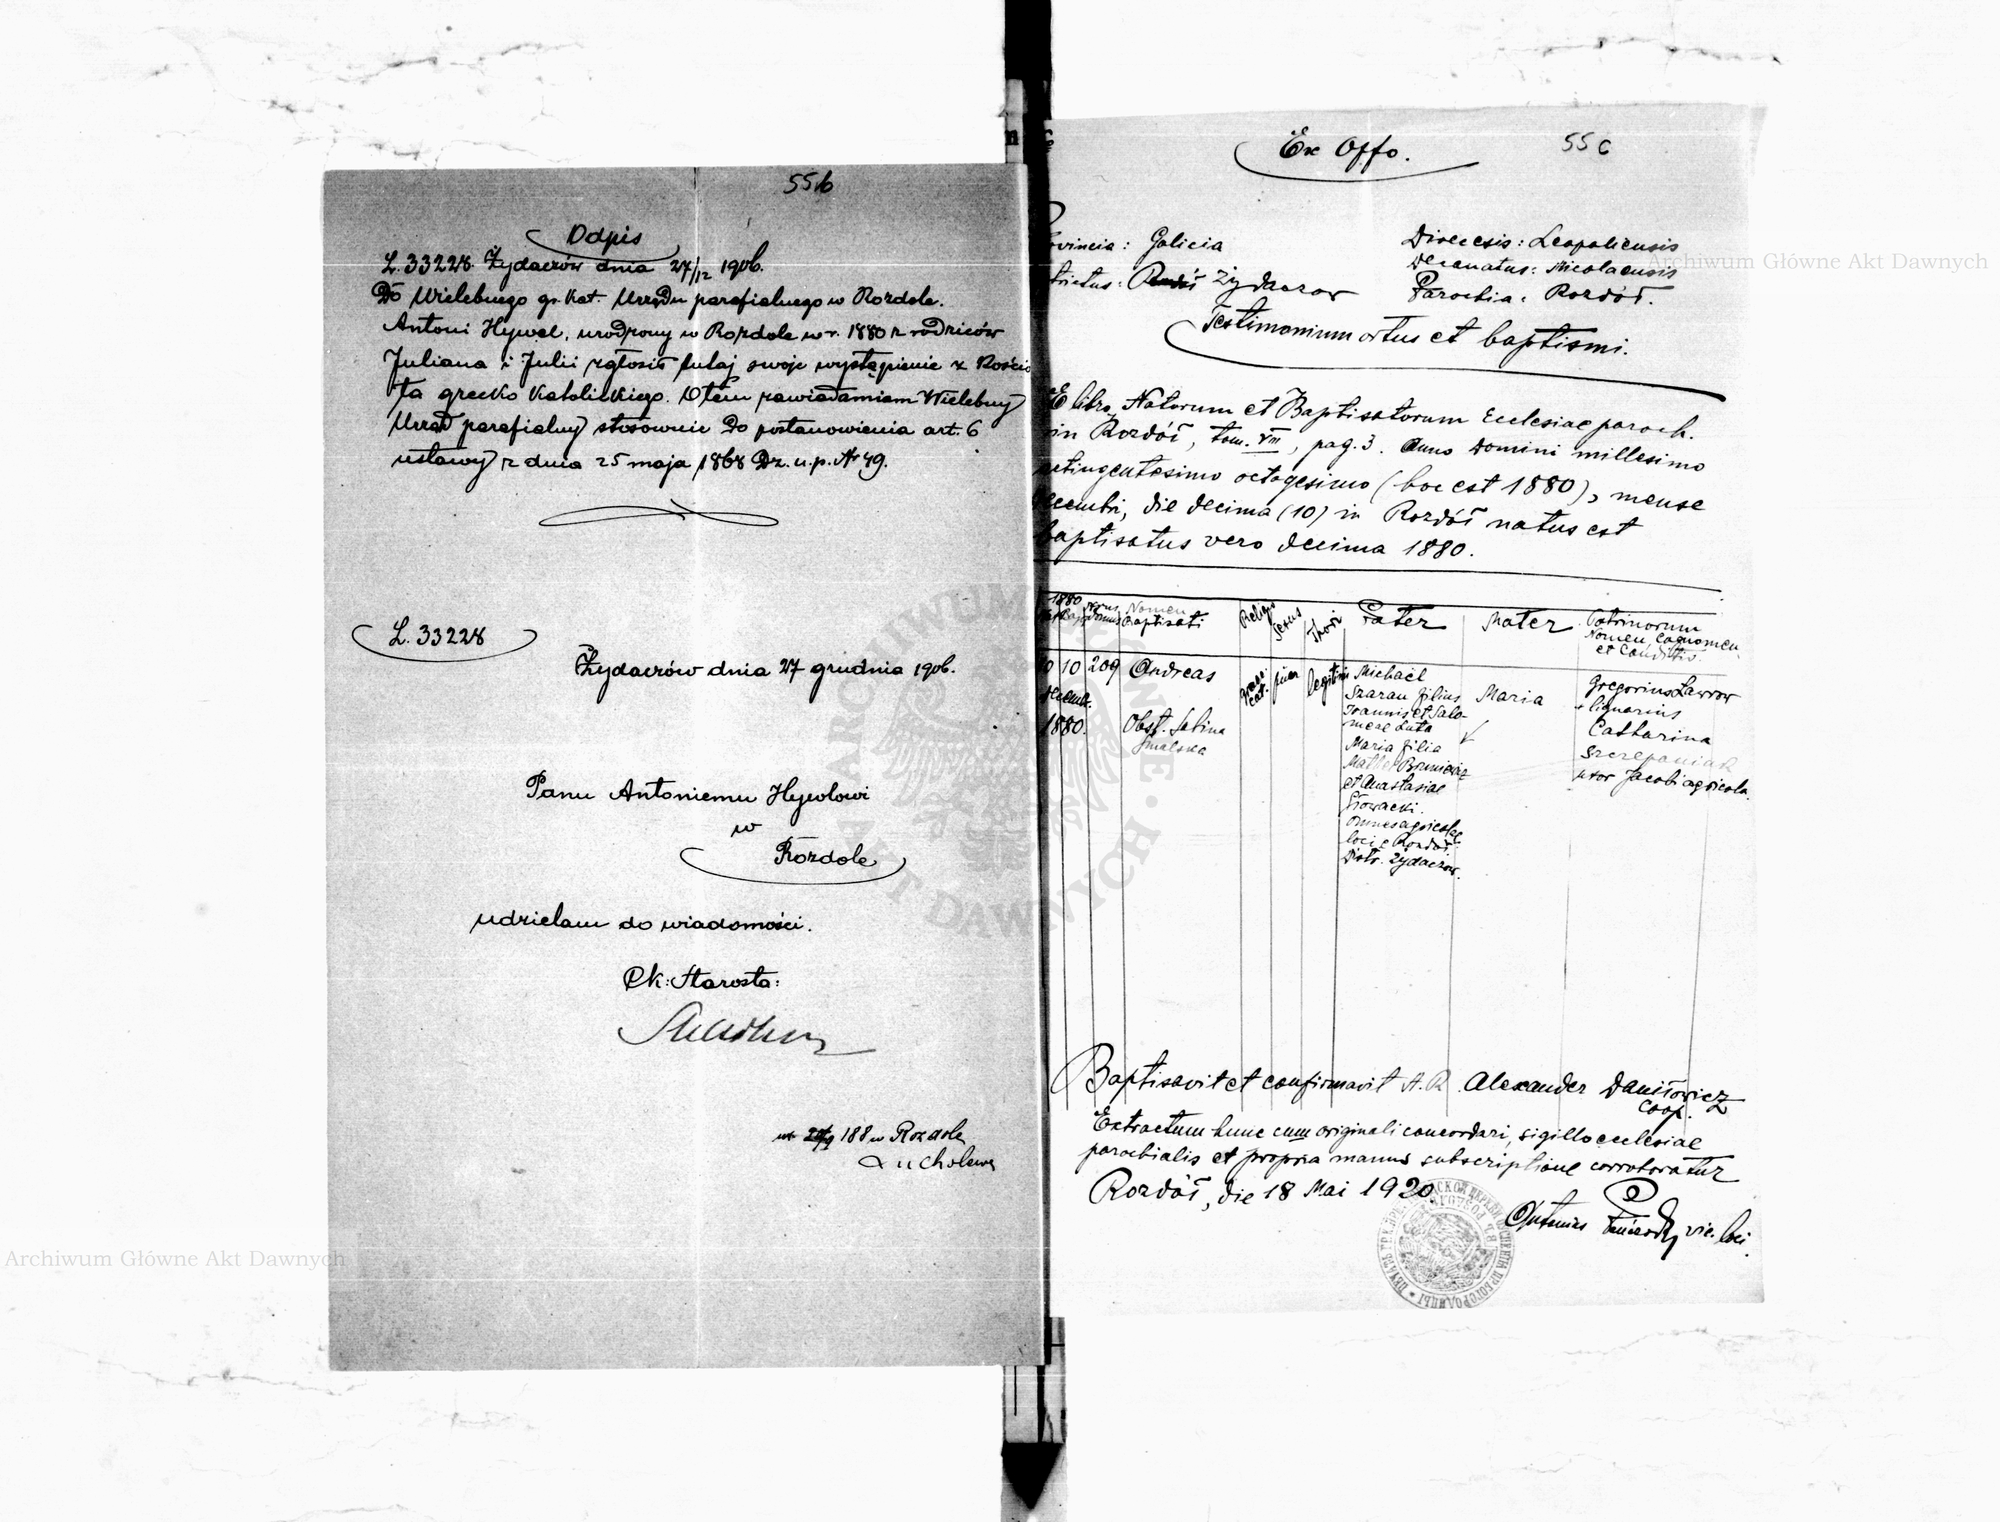 55b
Odpis
L. 33228. Żydaczów dnia 27/12 1906.
Do Wielebnego gr. kat. Urzędu parafialnego w Rozdole.
Antoni Hywel, urodzony w Rozdole w r. 1880 z rodziców
Juliana i Julii zgłosił tutaj swoje wystąpienie z Kościo
ła grecko katolickiego. O tem zawiadamiam Wielebny
Urząd parafialny stosownie do postanowienia art. 6
ustawy z dnia 25 maja 1868 Dz. u. p. Nr 49.
L. 33228
Żydaczów dnia 27 grudnia 1906.
Panu Antoniemu Hywlowi
w
Rozdole
udzielam do wiadomości.
Ck: Starosta:
188 w Rozdole
55c
Ex Offo.
ovincia: Galicia
Dioecesis: Leopoliensis
Decanatus: Micolaensis
trictus: Żydaczow
Parochia: Rozdół.
Testimonium ortus et baptismi.
E libro Natorum et Baptisatorum Ecclesiae paroch.
in Rozdół, tom. VIII, pag. 3. Anno Domini millesimo
octingentesimo octogesimo (hoc est 1880), mense
Decembri, die decima (10) in Rozdół natus est
baptisatus vero decima 1880.
1880
Nomen
Baptisati
Religio
Sexus
Thori
Pater
Mater
Patrinorum
Nomen Cognomen
et Conditio.
10 10 209 Andreas
puer
legitimi
Michael
Szaran filius
Joannis et Salo-
meae Luta
Maria filia
et Anastasiae
Głowacki.
omnes agricolae
loci Rozdół
Distr. Żydaczow.
Maria
Gregorius Lawrow
Catharina
Szczepaniak
uxor Jacobi agricola.
Decemb.
1880.
Obst. Sabina
Smalska
Baptisavit et confirmavit A. R. Alexander Daniłowicz
Coop.
Extractum hunc cum originali concordari, sigillo ecclesiae
parochialis et propria manus subscriptione corroboratur
Rozdół, die 18 Mai 1920
Antonius vic. loci.
Archiwum Główne Akt Dawnych
Archiwum Główne Akt Dawnych
ARCHIWUM GŁÓWNE AKT DAWNYCH